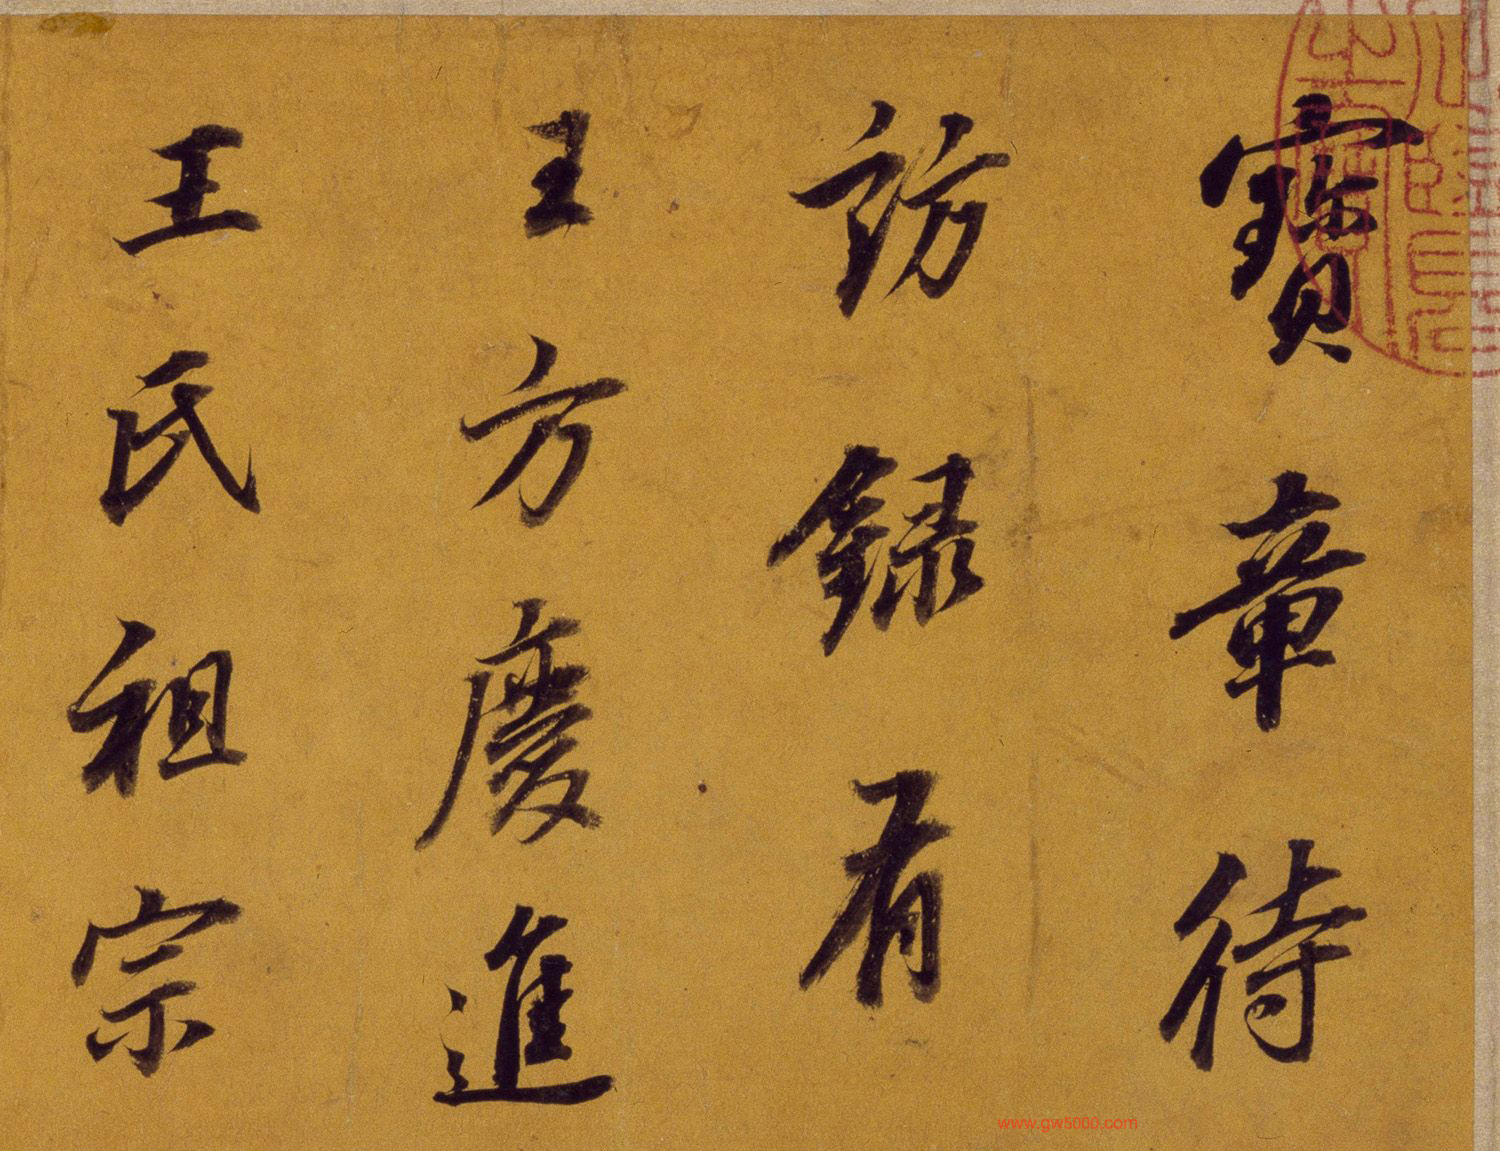 寶章待
訪録有
王方慶進
王氏祖宗
www.gw5000.com